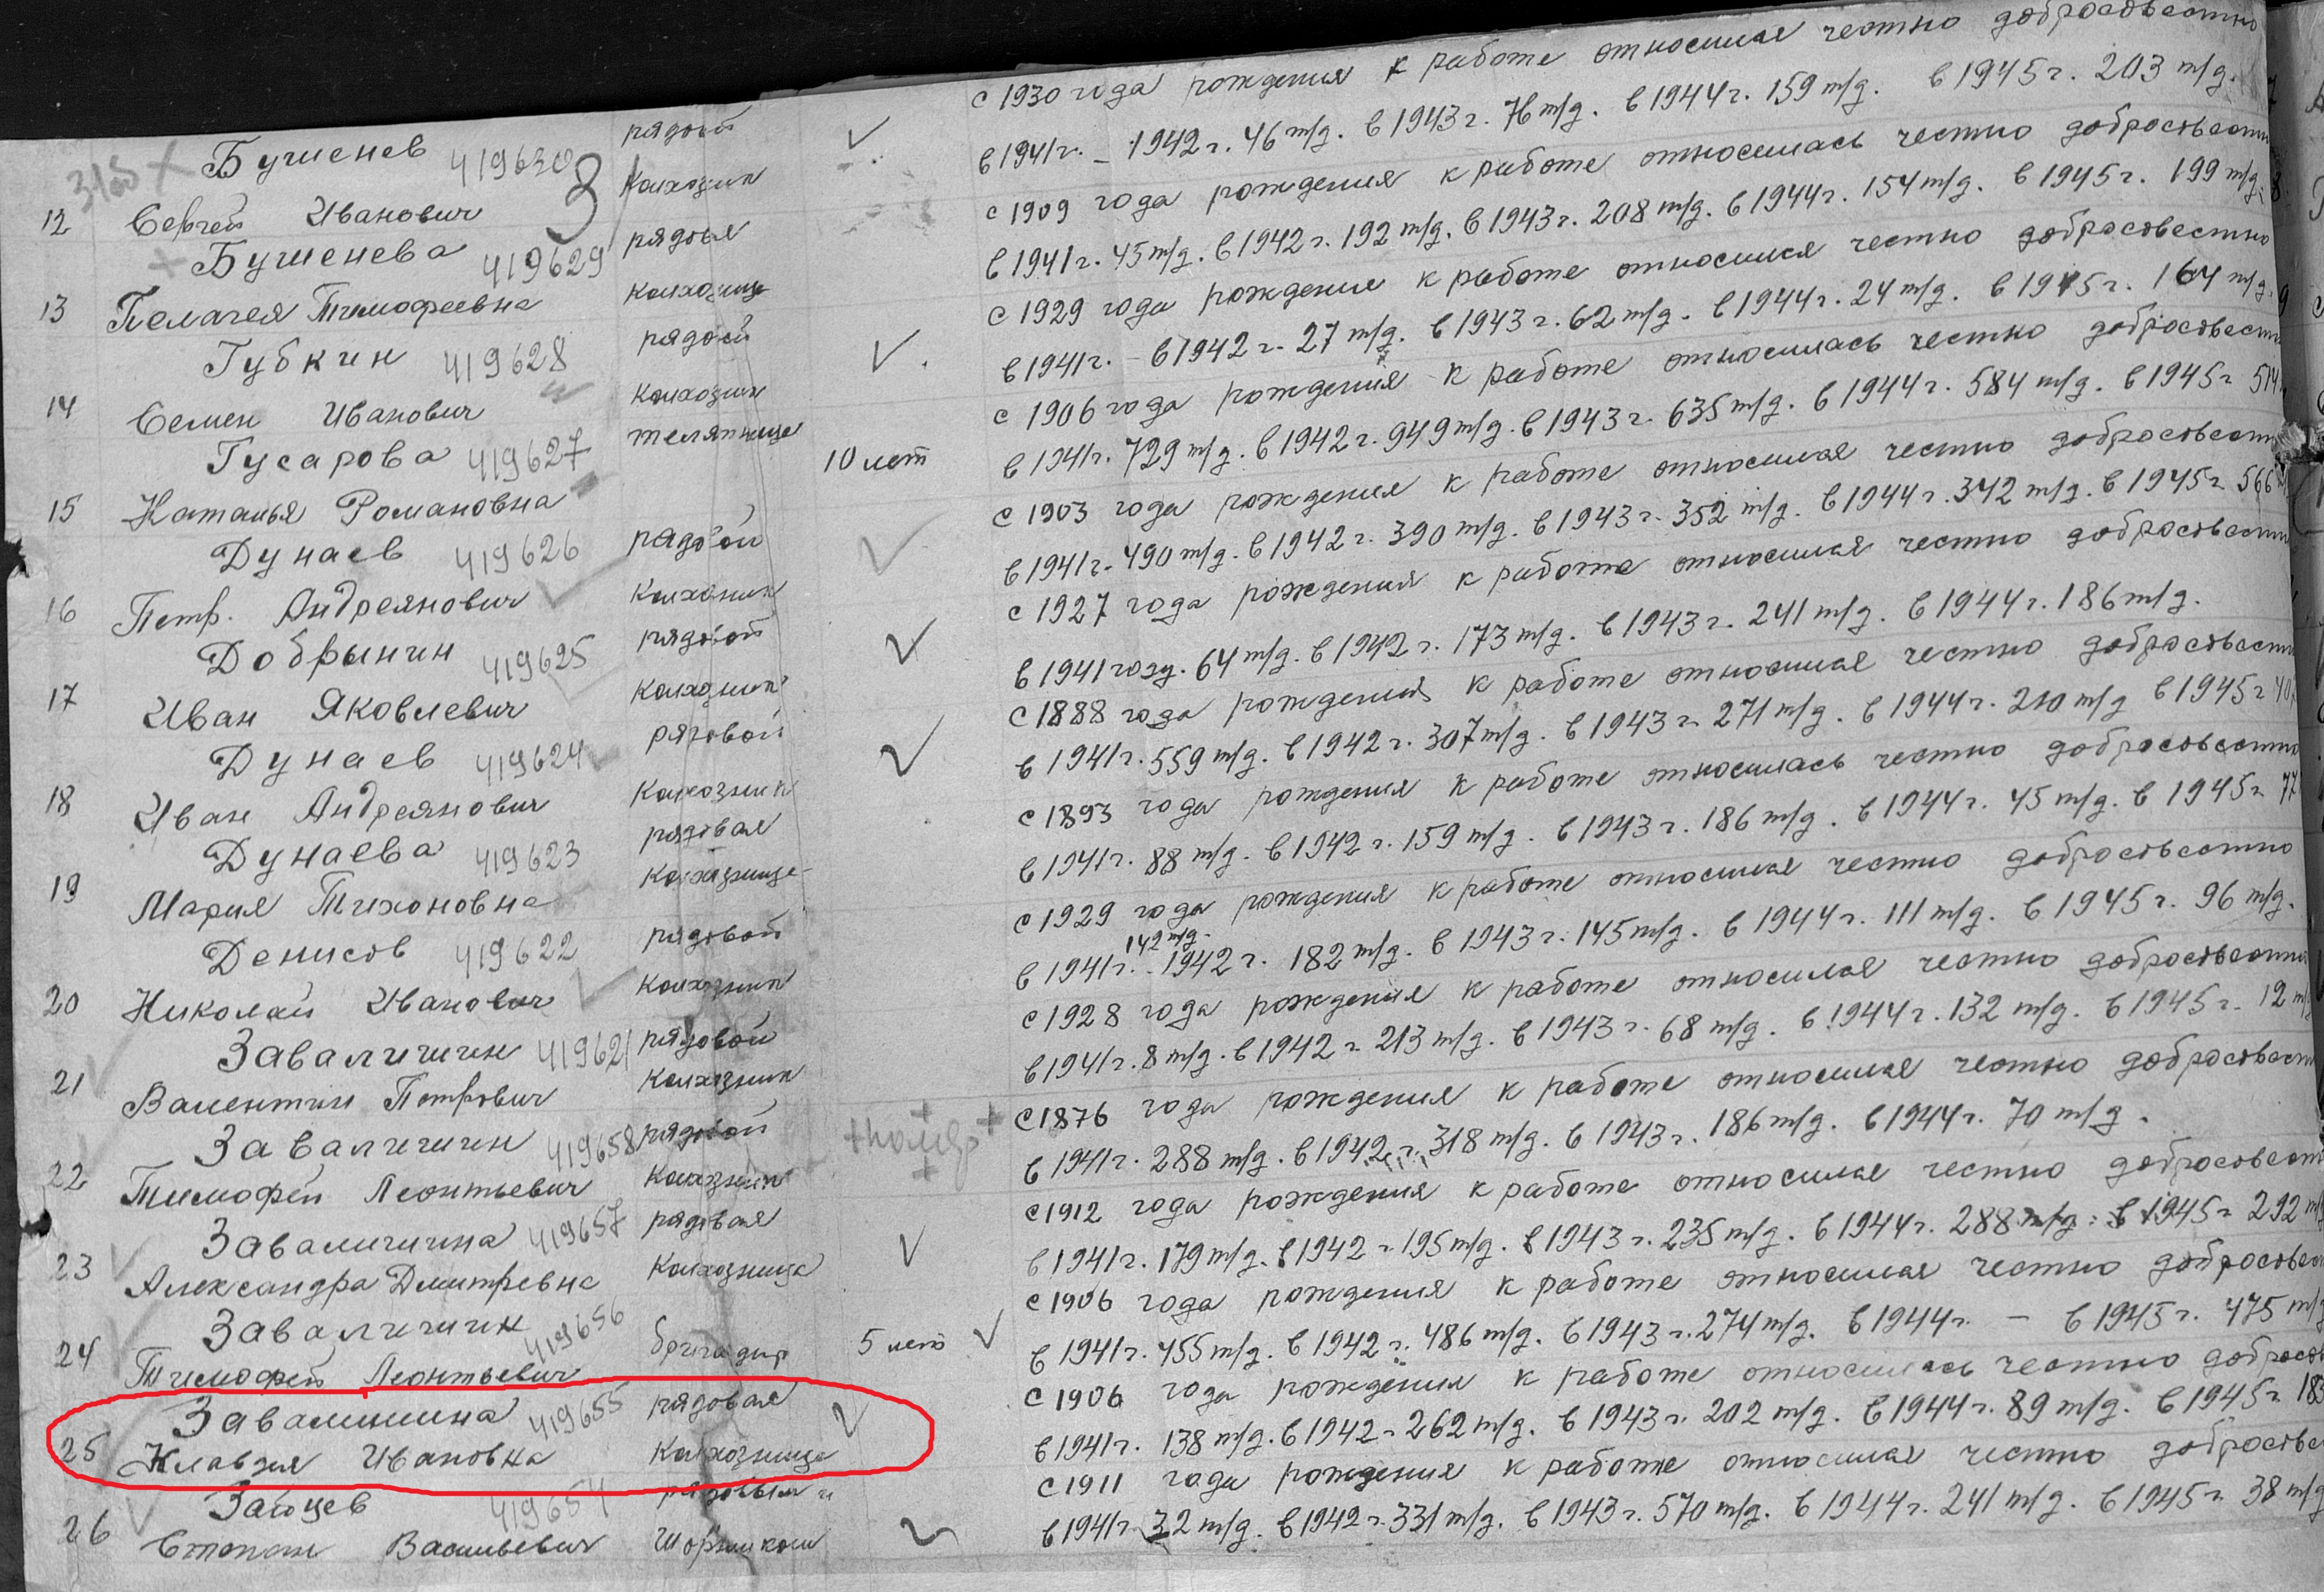 с 1930 года рождения к работе относился честно добросовестно
Бушенев 419630 рядовой
12 Сергей Иванович колхозник в 1941 г. – 1942 г. 46 т/д. в 1943 г. 76 т/д. в 1944 г. 159 т/д. в 1945 г. 203 т/д.
Бушенева 419629 рядовая с 1909 года рождения к работе относилась честно добросовестно
13 Пелагея Тимофеевна колхозница в 1941 г. 45 т/д. в 1942 г. 192 т/д. в 1943 г. 208 т/д. в 1944 г. 154 т/д. в 1945 г. 199 т/д.
Губкин 419628 рядовой с 1929 года рождения к работе относился честно добросовестно
14 Семен Иванович колхозник в 1941 г. – в 1942 г. 27 т/д. в 1943 г. 62 т/д. в 1944 г. 24 т/д. в 1945 г. 164 т/д.
Гусарова 419627 телятница 10 лет с 1906 года рождения к работе относилась честно добросовестно
15 Наталья Романовна в 1941 г. 729 т/д. в 1942 г. 949 т/д. в 1943 г. 635 т/д. в 1944 г. 584 т/д. в 1945 г. 514
Дунаев 419626 рядовой с 1903 года рождения к работе относился честно добросовестно
16 Петр. Андреянович колхозник в 1941 г. 490 т/д. в 1942 г. 390 т/д. в 1943 г. 352 т/д. в 1944 г. 342 т/д. в 1945 г. 566
Добрынин 419625 рядовой с 1927 года рождения к работе относился честно добросовестно
17 Иван Яковлевич колхозник в 1941 году. 64 т/д. в 1942 г. 173 т/д. в 1943 г. 241 т/д. в 1944 г. 186 т/д.
Дунаев 419624 рядовой с 1888 года рождения к работе относился честно добросовестно
18 Иван Андреянович колхозник в 1941 г. 559 т/д. в 1942 г. 307 т/д. в 1943 г. 271 т/д. в 1944 г. 210 т/д в 1945 г
Дунаева 419623 рядовая с 1893 года рождения к работе относилась честно добросовестно
19 Мария Тихоновна колхозница в 1941 г. 88 т/д. в 1942 г. 159 т/д. в 1943 г. 186 т/д. в 1944 г. 45 т/д. в 1945 г. 77
Денисов 419622 рядовой с 1929 года рождения к работе относился честно добросовестно
142 т/д.
20 Николай Иванович колхозник в 1941 г. 1942 г. 182 т/д. в 1943 г. 145 т/д. в 1944 г. 111 т/д. в 1945 г. 96 т/д.
Завалишин 419621 рядовой с 1928 года рождения к работе относился честно добросовестно
21 Валентин Петрович колхозник в 1941 г. 8 т/д. в 1942 г. 213 т/д. в 1943 г. 68 т/д. в 1944 г. 132 т/д. в 1945 г. 12 т/
Завалишин 419658 рядовой с 1876 года рождения к работе относился честно добросовестно
22 Тимофей Леонтьевич колхозник в 1941 г. 288 т/д. в 1942 г. 318 т/д. в 1943 г. 186 т/д. в 1944 г. 70 т/д.
Завалишина 419657 рядовая с 1912 года рождения к работе относился честно добросовестно
23 Александра Дмитревна колхозница в 1941 г. 179 т/д. в 1942 г. 195 т/д. в 1943 г. 235 т/д. в 1944 г. 288 т/д. в 1945 г. 292 т/
Завалишин 419656 с 1906 года рождения к работе относился честно добросовес
24 Тимофей Леонтьевич бригадир 5 лет в 1941 г. 455 т/д. в 1942 г. 486 т/д. в 1943 г. 274 т/д. в 1944 г. – в 1945 г. 475 т/д
Завалишина 419655 рядовая с 1906 года рождения к работе относилась честно добросов
25 Клавдия Ивановна колхозница в 1941 г. 138 т/д. в 1942 г. 262 т/д. в 1943 г. 202 т/д. в 1944 г. 89 т/д. в 1945 г. 18
Зайцев 419654 рядовым и с 1911 года рождения к работе относился честно добросове
26 Степан Васильевич шорником в 1941 г. 32 т/д. в 1942 г. 331 т/д. в 1943 г. 570 т/д. в 1944 г. 241 т/д. в 1945 г. 38 т/д